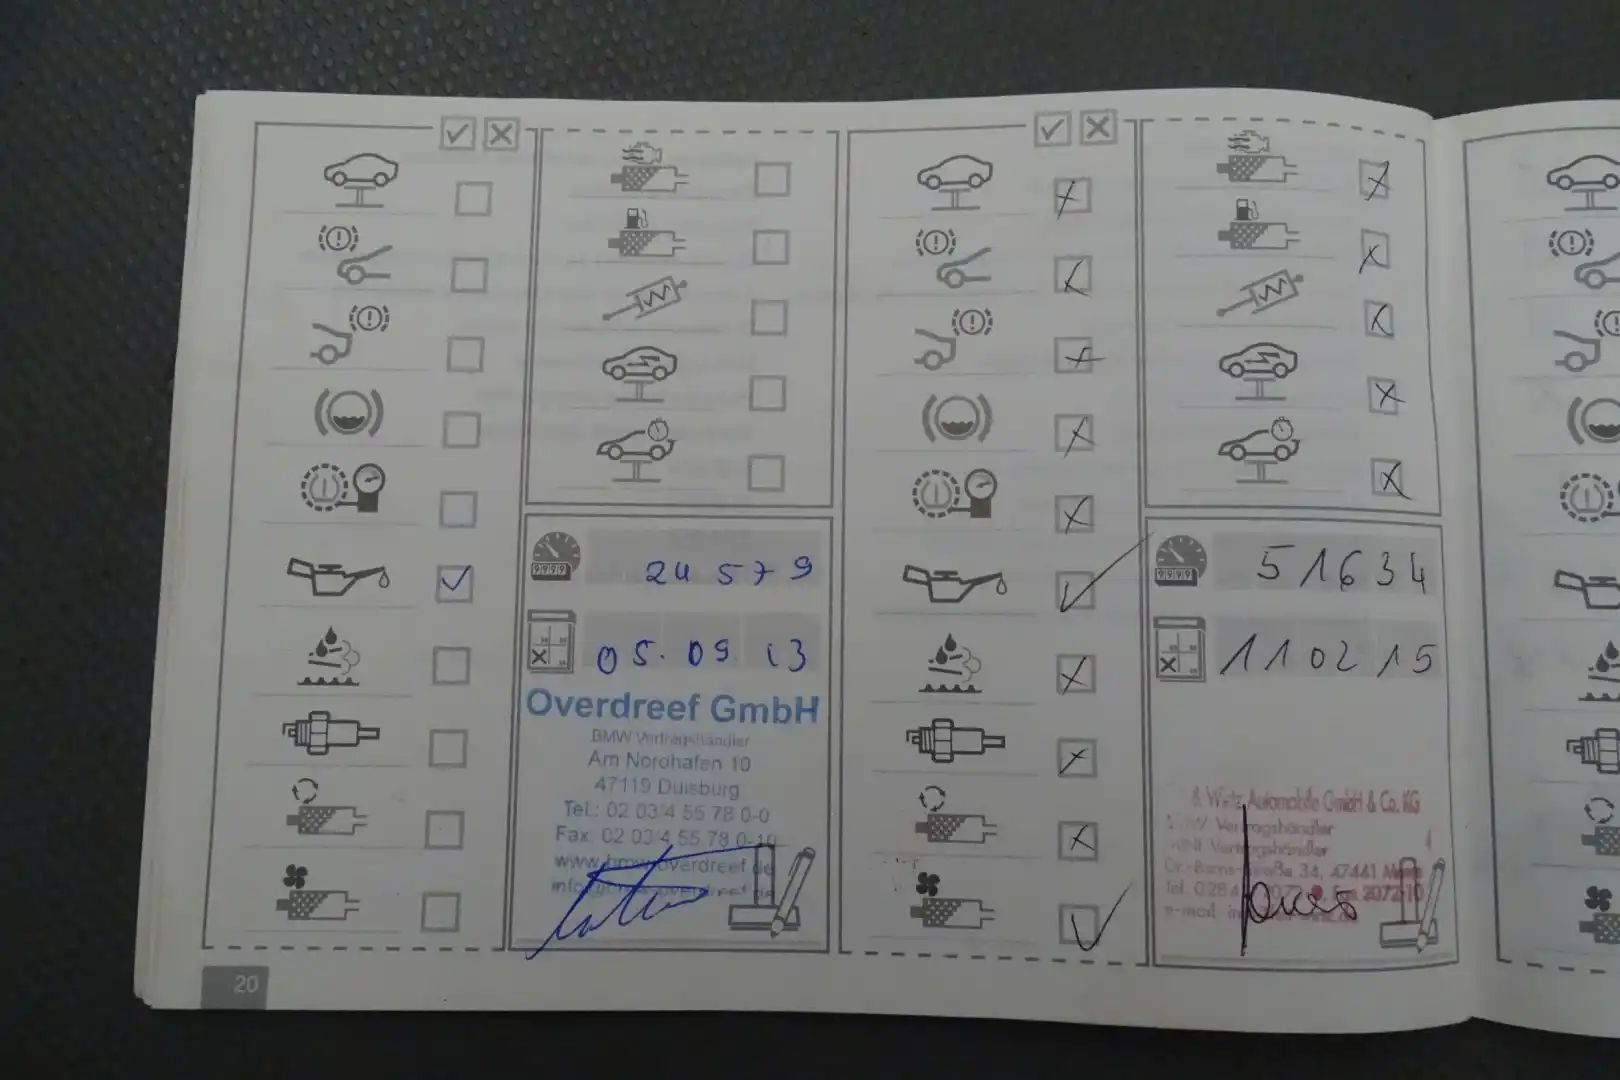 24579
05.09.13
Overdreef GmbH
BMW Vertragshändler
Am Nordhafen 10
47119 Duisburg
Tel.: 02 03/4 55 78 0-0
Fax: 02 03/4 55 78 0-10
www.bmw-overdreef.de
51634
110215
Automobile GmbH & Co. KG
Vertragshändler
MINI Vertragshändler
34, 47441
Tel.
2072-10
e-mail
20